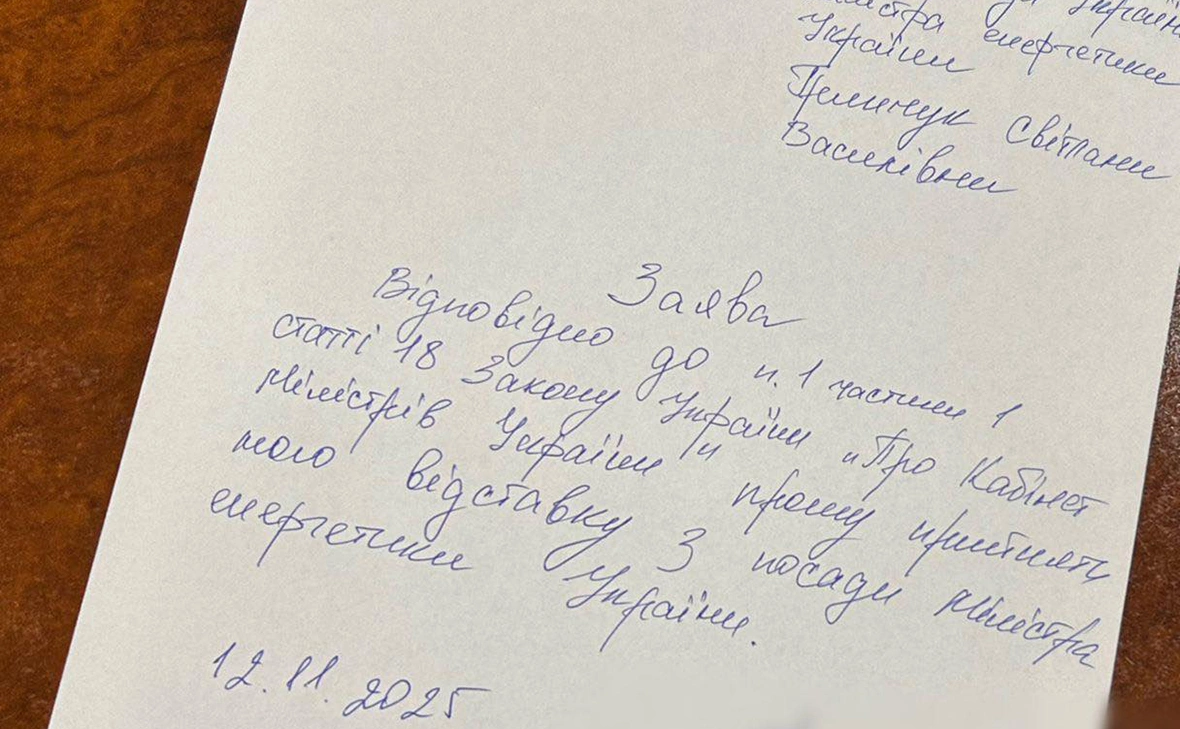 України
міністра енергетики
України
Гринчук Світлани
Василівни
Заява
Відповідно до п. 1 частини 1
статті 18 Закону України "Про Кабінет
Міністрів України" прошу прийняти
мою відставку з посади міністра
енергетики України.
12.11.2025